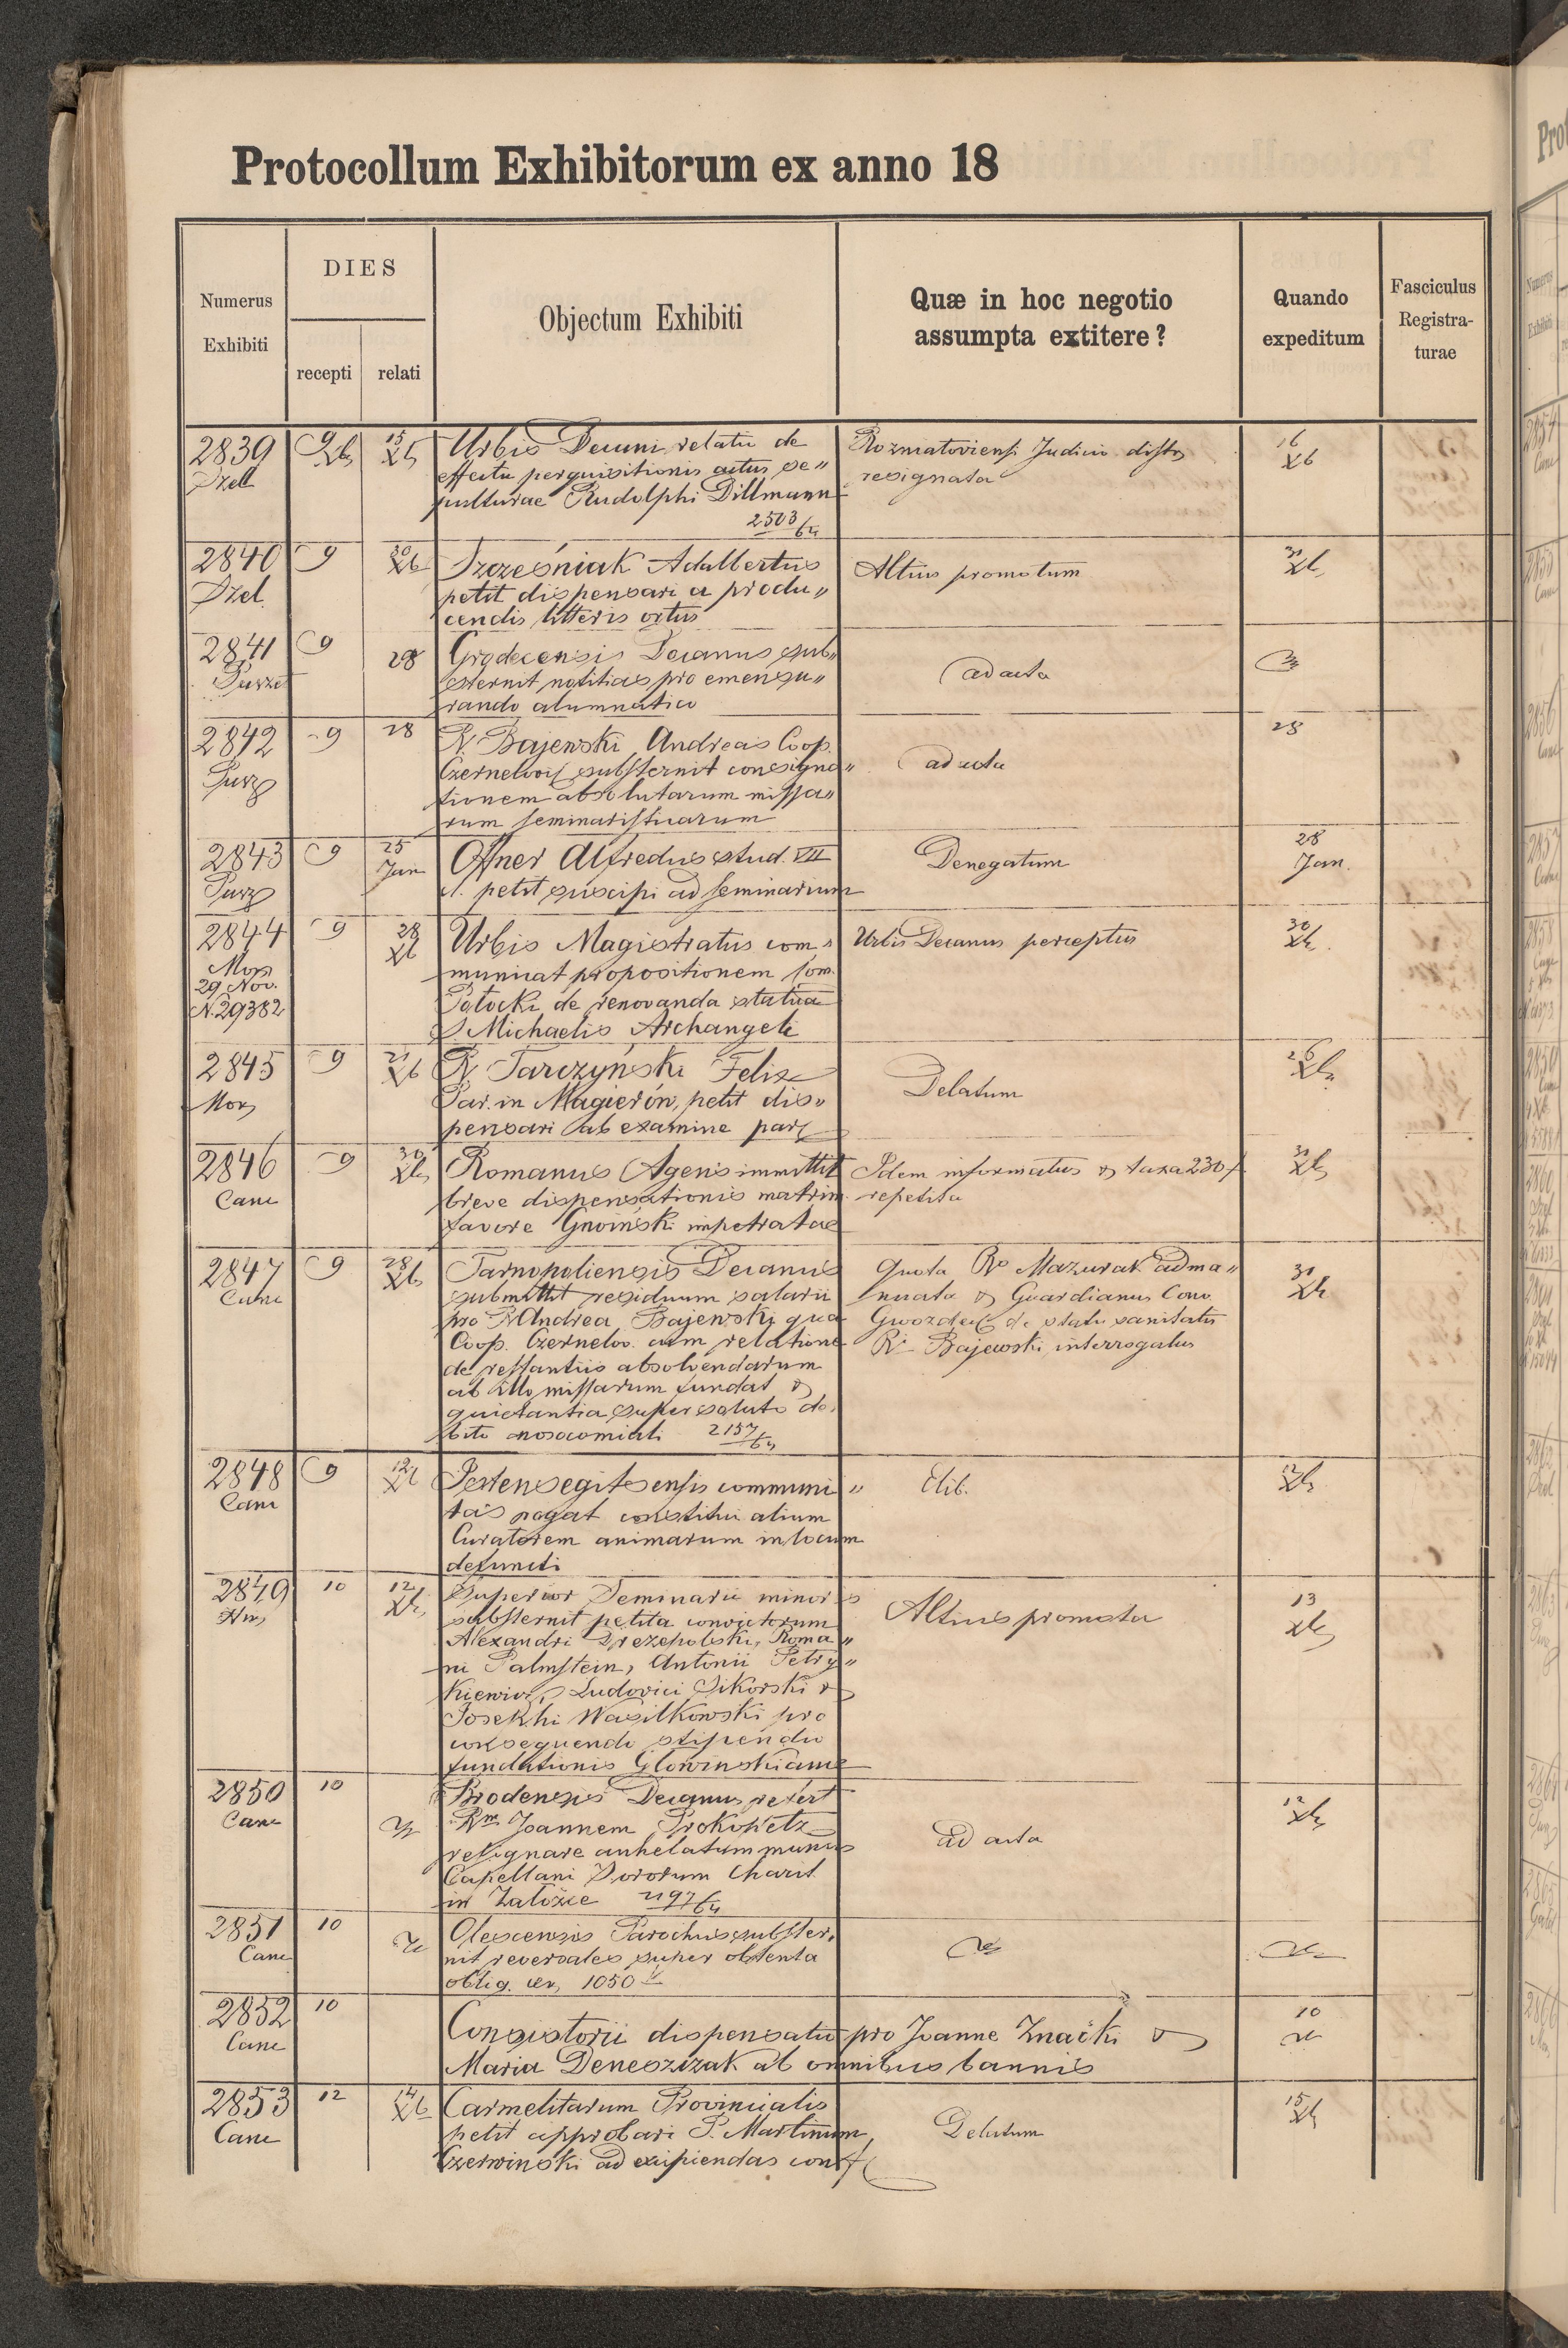 Protocollum Exhibitorum ex anno 18
Numerus Exhibiti
DIES
recepti
relati
Objectum Exhibiti
Quæ in hoc negotio assumpta extitere?
Quando expeditum
Fasciculus Registra-turae
2839 9 Xb 15 Xb Urbis Decani relatio de Rozniatoviensi Judicio distr 16 Xb
effectu perquisitionis actus se" resignata
pulturae Rudolphi Dillmann
2503/64
2840 9 30 Xb Szcześniak Adalbertus Altius promotum 31 Xb
Dzel. petit dispensari a produ"
cendis litteris ortus
2841 9 28 Grodecensis Decanus sub" ad acta
sternit notitias pro emensu"
rando alumnatico
2842 9 28 R. Bajewski Andreas Coop. ad acta 28
Purz Czernelov substernit consigna"
tionem absolutarum missa"
rum seminaristicarum
2843 9 25 Jan Offner Alfredus stud. VII Denegatum 28 Jan.
Purz cl. petit suscipi ad seminarium
2844 9 28 Xb Urbis Magistratus com" Urbis Decanus perceptus 30 Xb
Mors municat propositionem Com.
29 Nov. Potocki de renovanda statua
N. 29382 S Michaelis Archangeli
2845 9 21 Xb R Tarczyński Felix Delatum 26 Xb
Mors Par. in Magierów, petit dis"
pensari ab examine par
2846 9 30 Xb Romanus Agens immittit Idem informatus & taxa 230 f 31 Xb
Canc breve dispensationis matrim. repetita
favore Gnoiński impetratae
2847 9 28 Xb Tarnopoliensis Decanus Quota Ro Mazurak adma" 31 Xb
Canc submittit residuum salarii nuata & Guardianus Conv.
pro R Andrea Bajewski qua Gwozdec de statu sanitatis
Coop. Czernelov. cum relatione Ri Bajewski interrogatus
de restantiis absolvendarum
ab illo missarum fundat &
quietantia super soluto de"
bito nosocomiali 2157/64
2848 9 12 Xb communi" Elib. 12 Xb
Canc tas rogat constitui alium
Curatorem animarum in locum
defuncti
2849 10 12 Xb Superior Seminarii minoris Altius promota 13 Xb
substernit petita convictorum
Alexandri Przezpolski, Roma"
ni Palmstein, Antonii Petry"
kiewicz, Ludovici Sikorski &
Josephi Wasilkowski pro
consequendo stipendio
fundationis Głowinskianae
2850 10 Brodensis Decanus refert ad acta 12 Xb
Canc Rm Joannem Prokopetz
resignare anhelatum munus
Capellani Sororum Charit
in Założce 2197/64
2851 10 Olescensis Parochus subster"
Canc nit reversales super obtenta
oblig. 1050 f
2852 10 Consistorii dispensatio pro Joanne Znački & 10
Canc Maria Deneszizak ab omnibus bannis
2853 12 14 Xb Carmelitarum Provincialis Delatum 15 Xb
Canc petit approbari P. Martinum
Czerwinski ad excipiendas conf